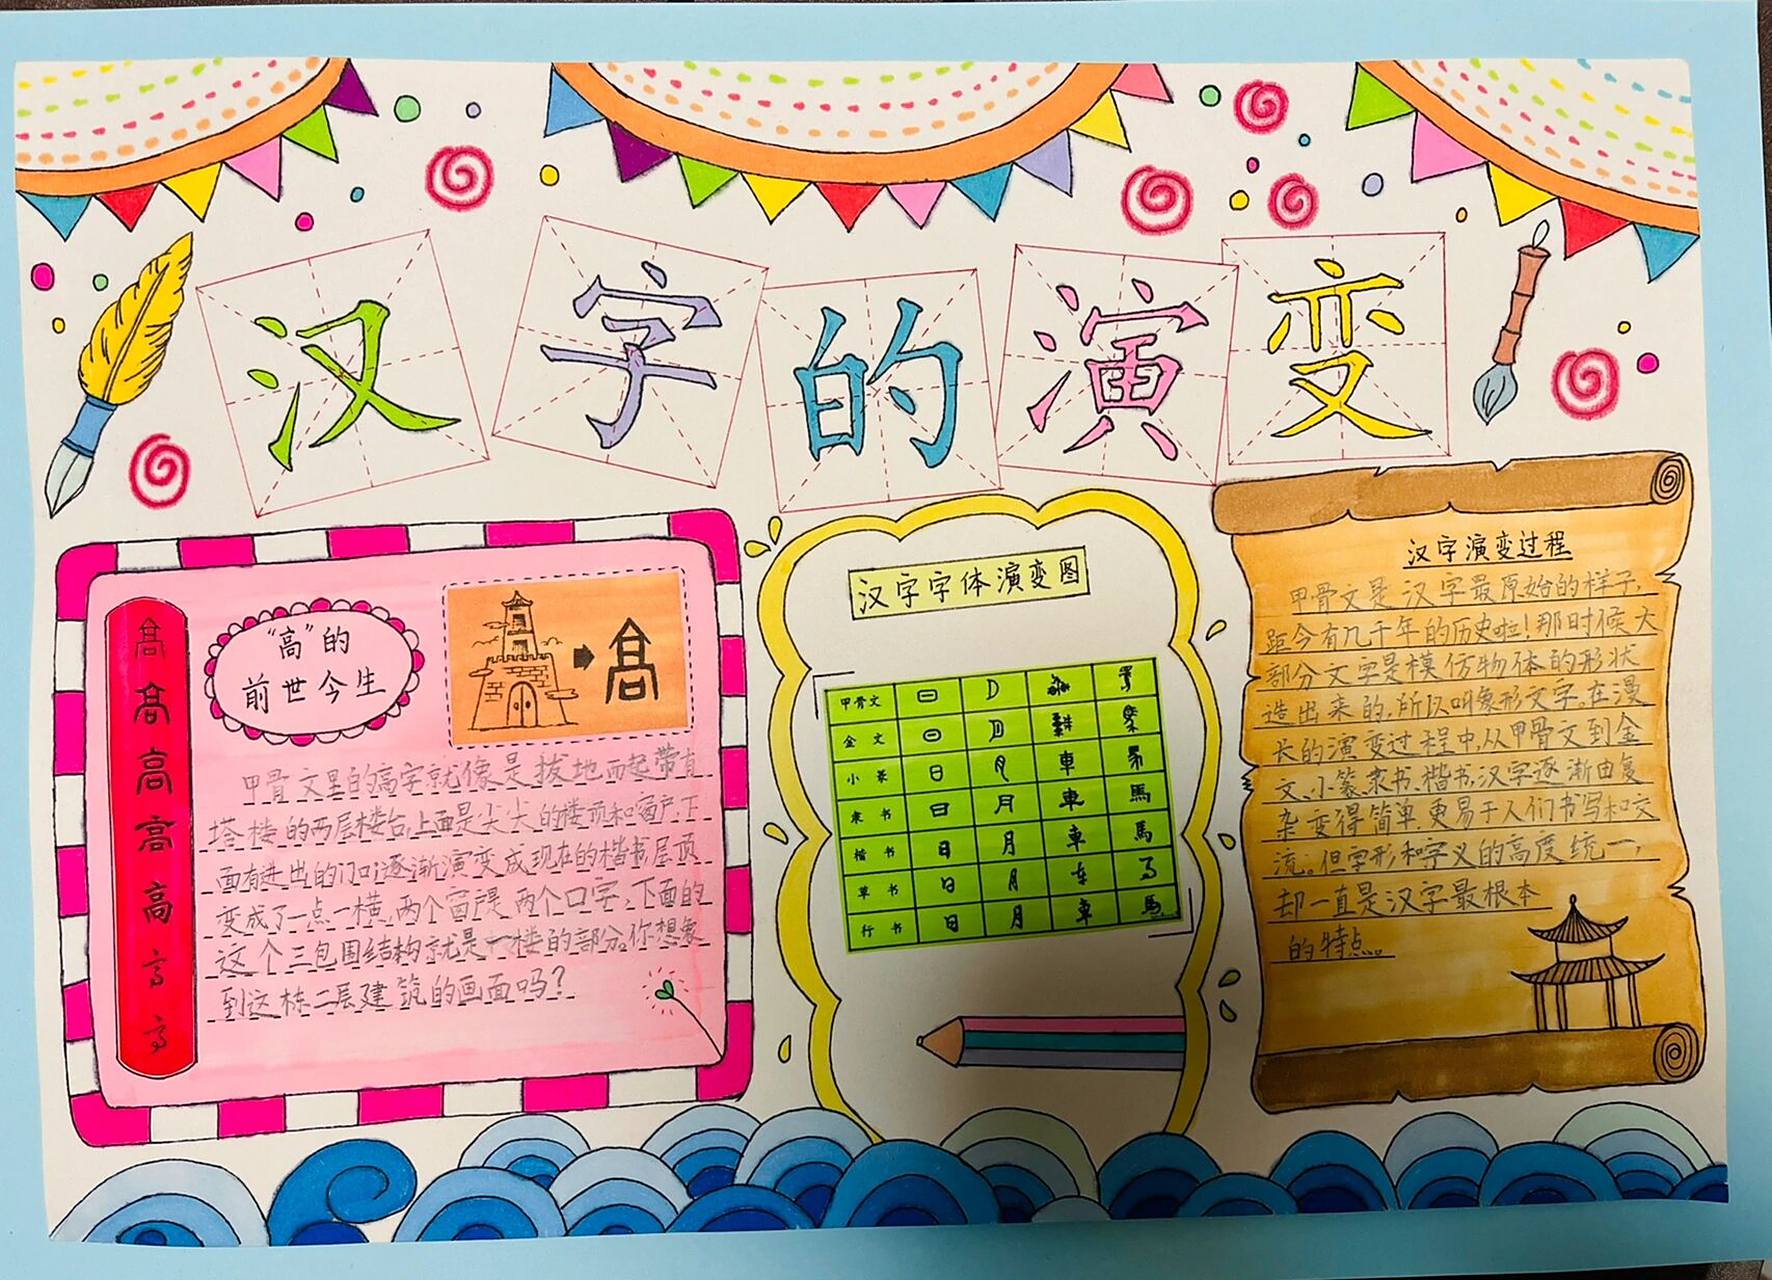 汉字的演变
高
高
高
高
高
高
高
"高"的
前世今生
高
甲骨文里的高字就像是拔地而起带有
塔楼的两层楼台,上面是尖尖的楼顶和窗户,下
面有进出的门口逐渐演变成现在的楷书屋顶
变成了一点一横,两个窗户是两个口字,下面的
这个三包围结构就是一楼的部分。你想象
到这栋二层建筑的画面吗?
汉字字体演变图
甲骨文 日 月 車 馬
金文 日 月 車 馬
小篆 日 月 車 馬
隶书 日 月 車 馬
楷书 日 月 車 馬
草书 日 月 车 马
行书 日 月 車 馬
汉字演变过程
甲骨文是汉字最原始的样子,
距今有几千年的历史啦!那时候大
部分文字是模仿物体的形状
造出来的,所以叫象形文字。在漫
长的演变过程中,从甲骨文到金
文、小篆、隶书、楷书,汉字逐渐由复
杂变得简单,更易于人们书写和交
流。但字形和字义的高度统一,
却一直是汉字最根本
的特点。